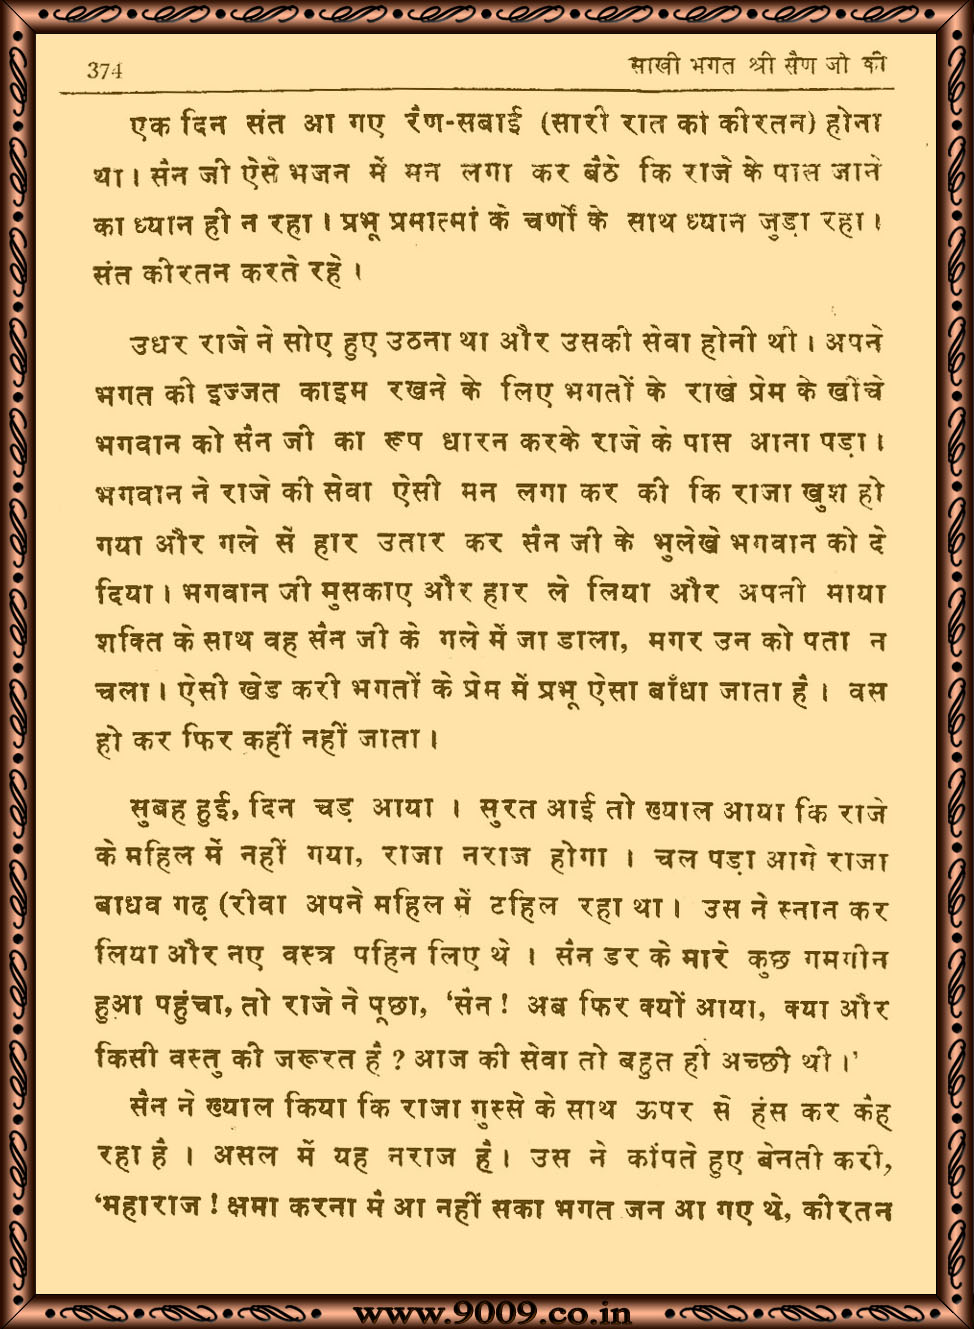 374 साखी भगत श्री सैण जी की
एक दिन संत आ गए रैण-सबाई (सारी रात का कीरतन) होना
था। सैन जी ऐसे भजन में मन लगा कर बैठे कि राजे के पास जाने
का ध्यान ही न रहा। प्रभू प्रमात्मां के चर्णों के साथ ध्यान जुड़ा रहा।
संत कीरतन करते रहे।
उधर राजे ने सोए हुए उठना था और उसकी सेवा होनी थी। अपने
भगत की इज्जत काइम रखने के लिए भगतों के राखे प्रेम के खींचे
भगवान को सैन जी का रूप धारन करके राजे के पास आना पड़ा।
भगवान ने राजे की सेवा ऐसी मन लगा कर की कि राजा खुश हो
गया और गले सें हार उतार कर सैन जी के भुलेखे भगवान को दे
दिया। भगवान जी मुसकाए और हार ले लिया और अपनी माया
शक्ति के साथ वह सैन जी के गले में जा डाला, मगर उन को पता न
चला। ऐसी खेड करी भगतों के प्रेम में प्रभू ऐसा बाँधा जाता है। वस
हो कर फिर कहीं नहीं जाता।
सुबह हुई, दिन चड़ आया । सुरत आई तो ख्याल आया कि राजे
के महिल में नहीं गया, राजा नराज होगा । चल पड़ा आगे राजा
बाधव गढ़ (रीवा अपने महिल में टहिल रहा था। उस ने स्नान कर
लिया और नए वस्त्र पहिन लिए थे । सैन डर के मारे कुछ गमगीन
हुआ पहुंचा, तो राजे ने पूछा, 'सैन! अब फिर क्यों आया, क्या और
किसी वस्तु की जरूरत है ? आज की सेवा तो बहुत ही अच्छी थी।'
सैन ने ख्याल किया कि राजा गुस्से के साथ ऊपर से हंस कर कैह
रहा है । असल में यह नराज है। उस ने कांपते हुए बेनती करी,
'महाराज! क्षमा करना मै आ नहीं सका भगत जन आ गए थे, कीरतन
www.9009.co.in